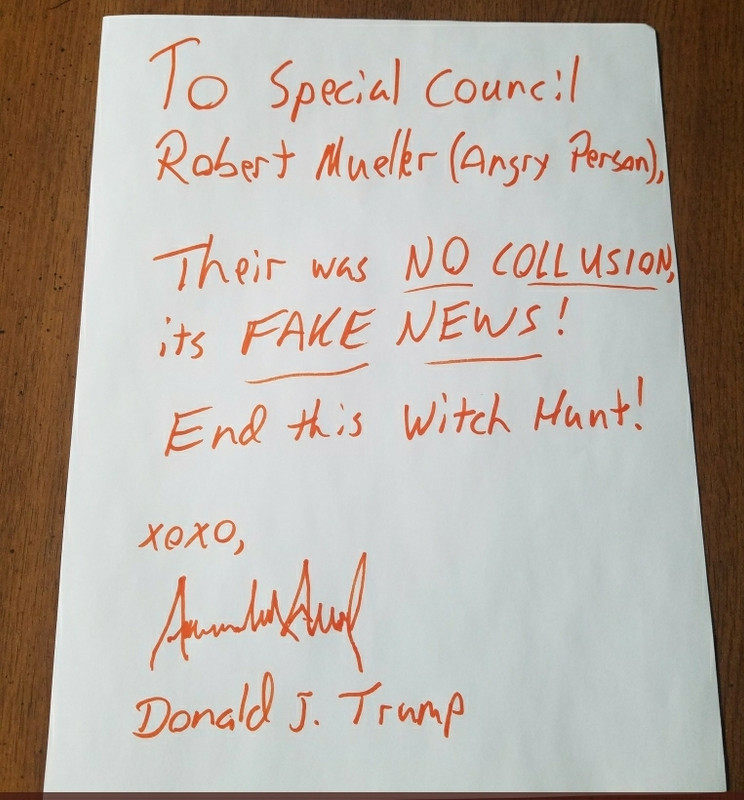 To Special Council
Robert Mueller (Angry Person),
Their was NO COLLUSION,
its FAKE NEWS!
End this Witch Hunt!
xoxo,
Donald J. Trump